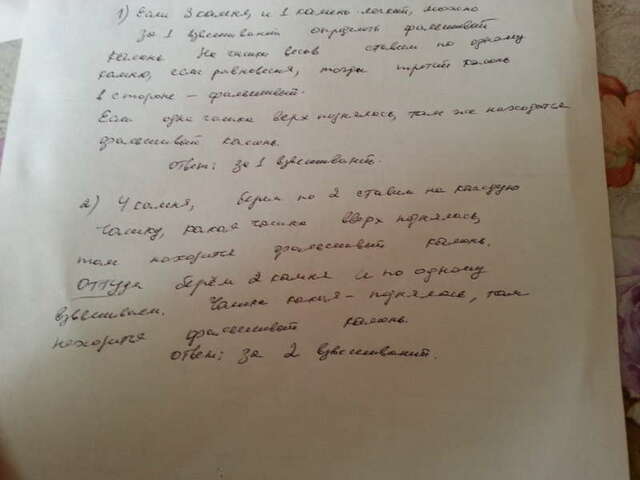 1) Если 3 камня, и 1 камень легкий, можно
за 1 взвешивание определить фальшивый
камень. На чашки весов ставим по одному
камню, если равновесия, тогда третий камень
в стороне – фальшивый.
Если одна чашка вверх поднялась, там же находится
фальшивый камень.
Ответ: за 1 взвешивант.
2) 4 камня, берим по 2 ставим на каждую
чашку, какая чашка вверх поднялась,
там находится фальшивый камень.
Оттуда берём 2 камня и по одному
взвешиваем. Чашка какая – поднялась, там
находится фальшивый камень.
Ответ: за 2 взвешиваний.